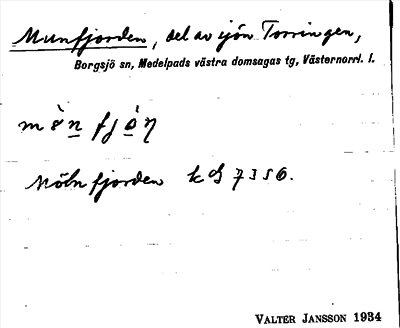 Munfjorden, del av sjön Torringen,
Borgsjö sn, Medelpads västra domsagas tg, Västernorrl. l.
Möln fjorden k G 7356.
VALTER JANSSON 1934